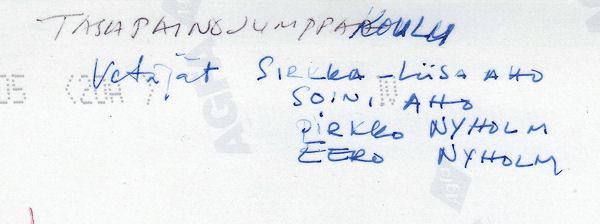 TASAPAINOJUMPPAKOULU
Vetäjät SIRKKA-LIISA AHO
SOINI AHO
PIRKKO NYHOLM
EERO NYHOLM